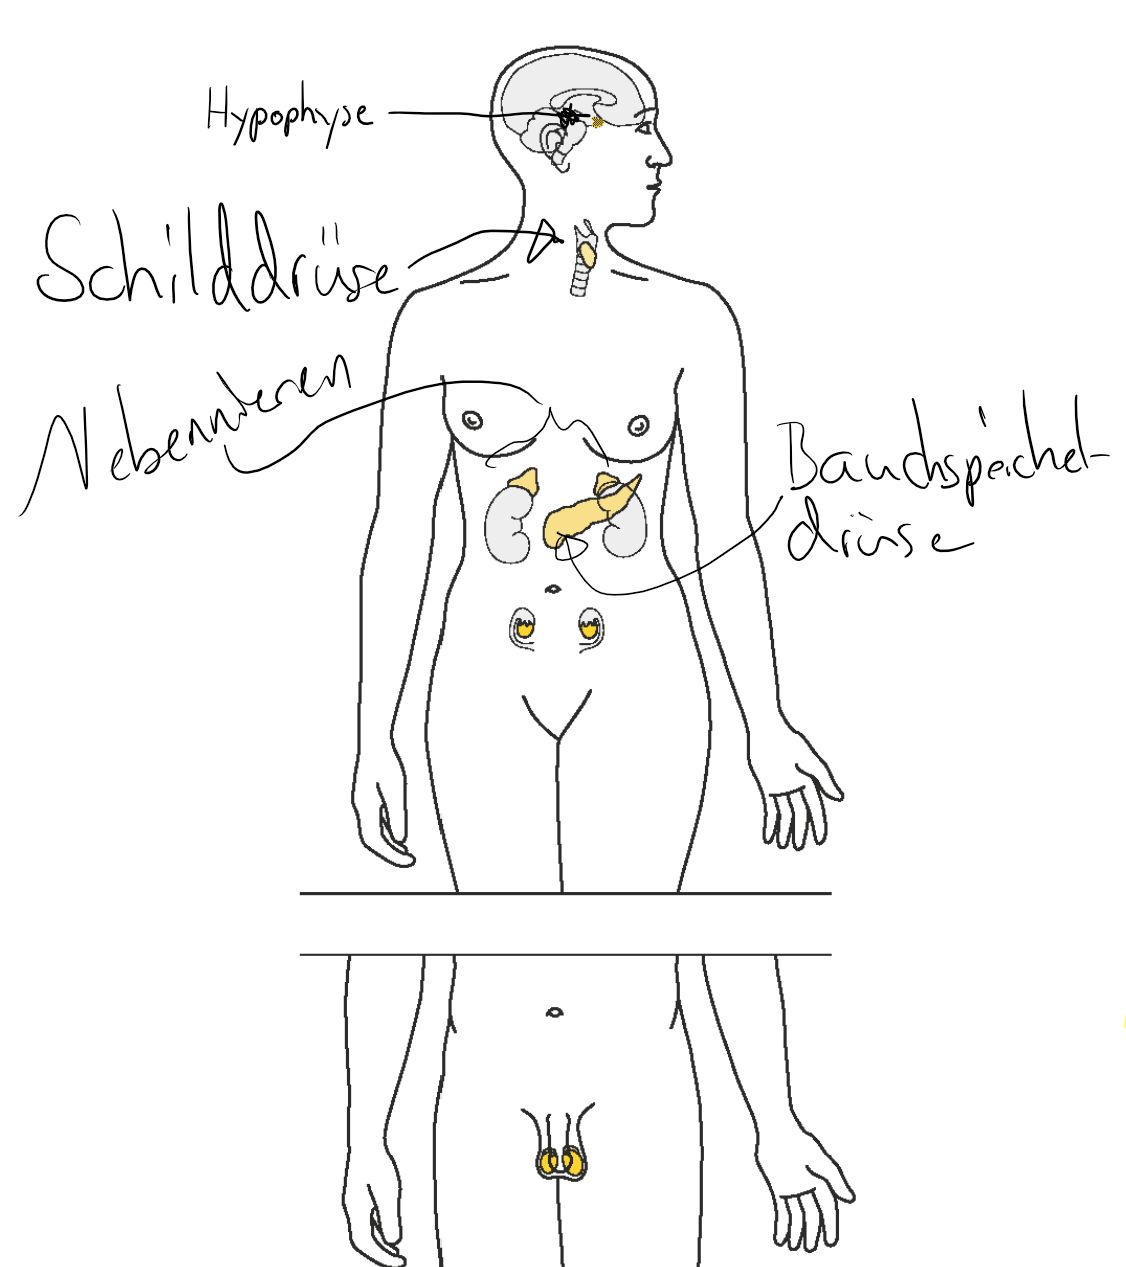 Hypophyse
Schilddrüse
Nebennieren
Bauchspeichel-
drüse